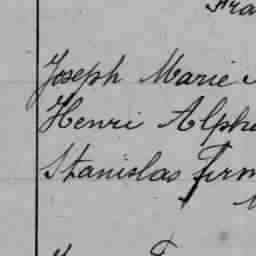 Fra
Joseph Marie
Henri Alpho
Stanislas Firm